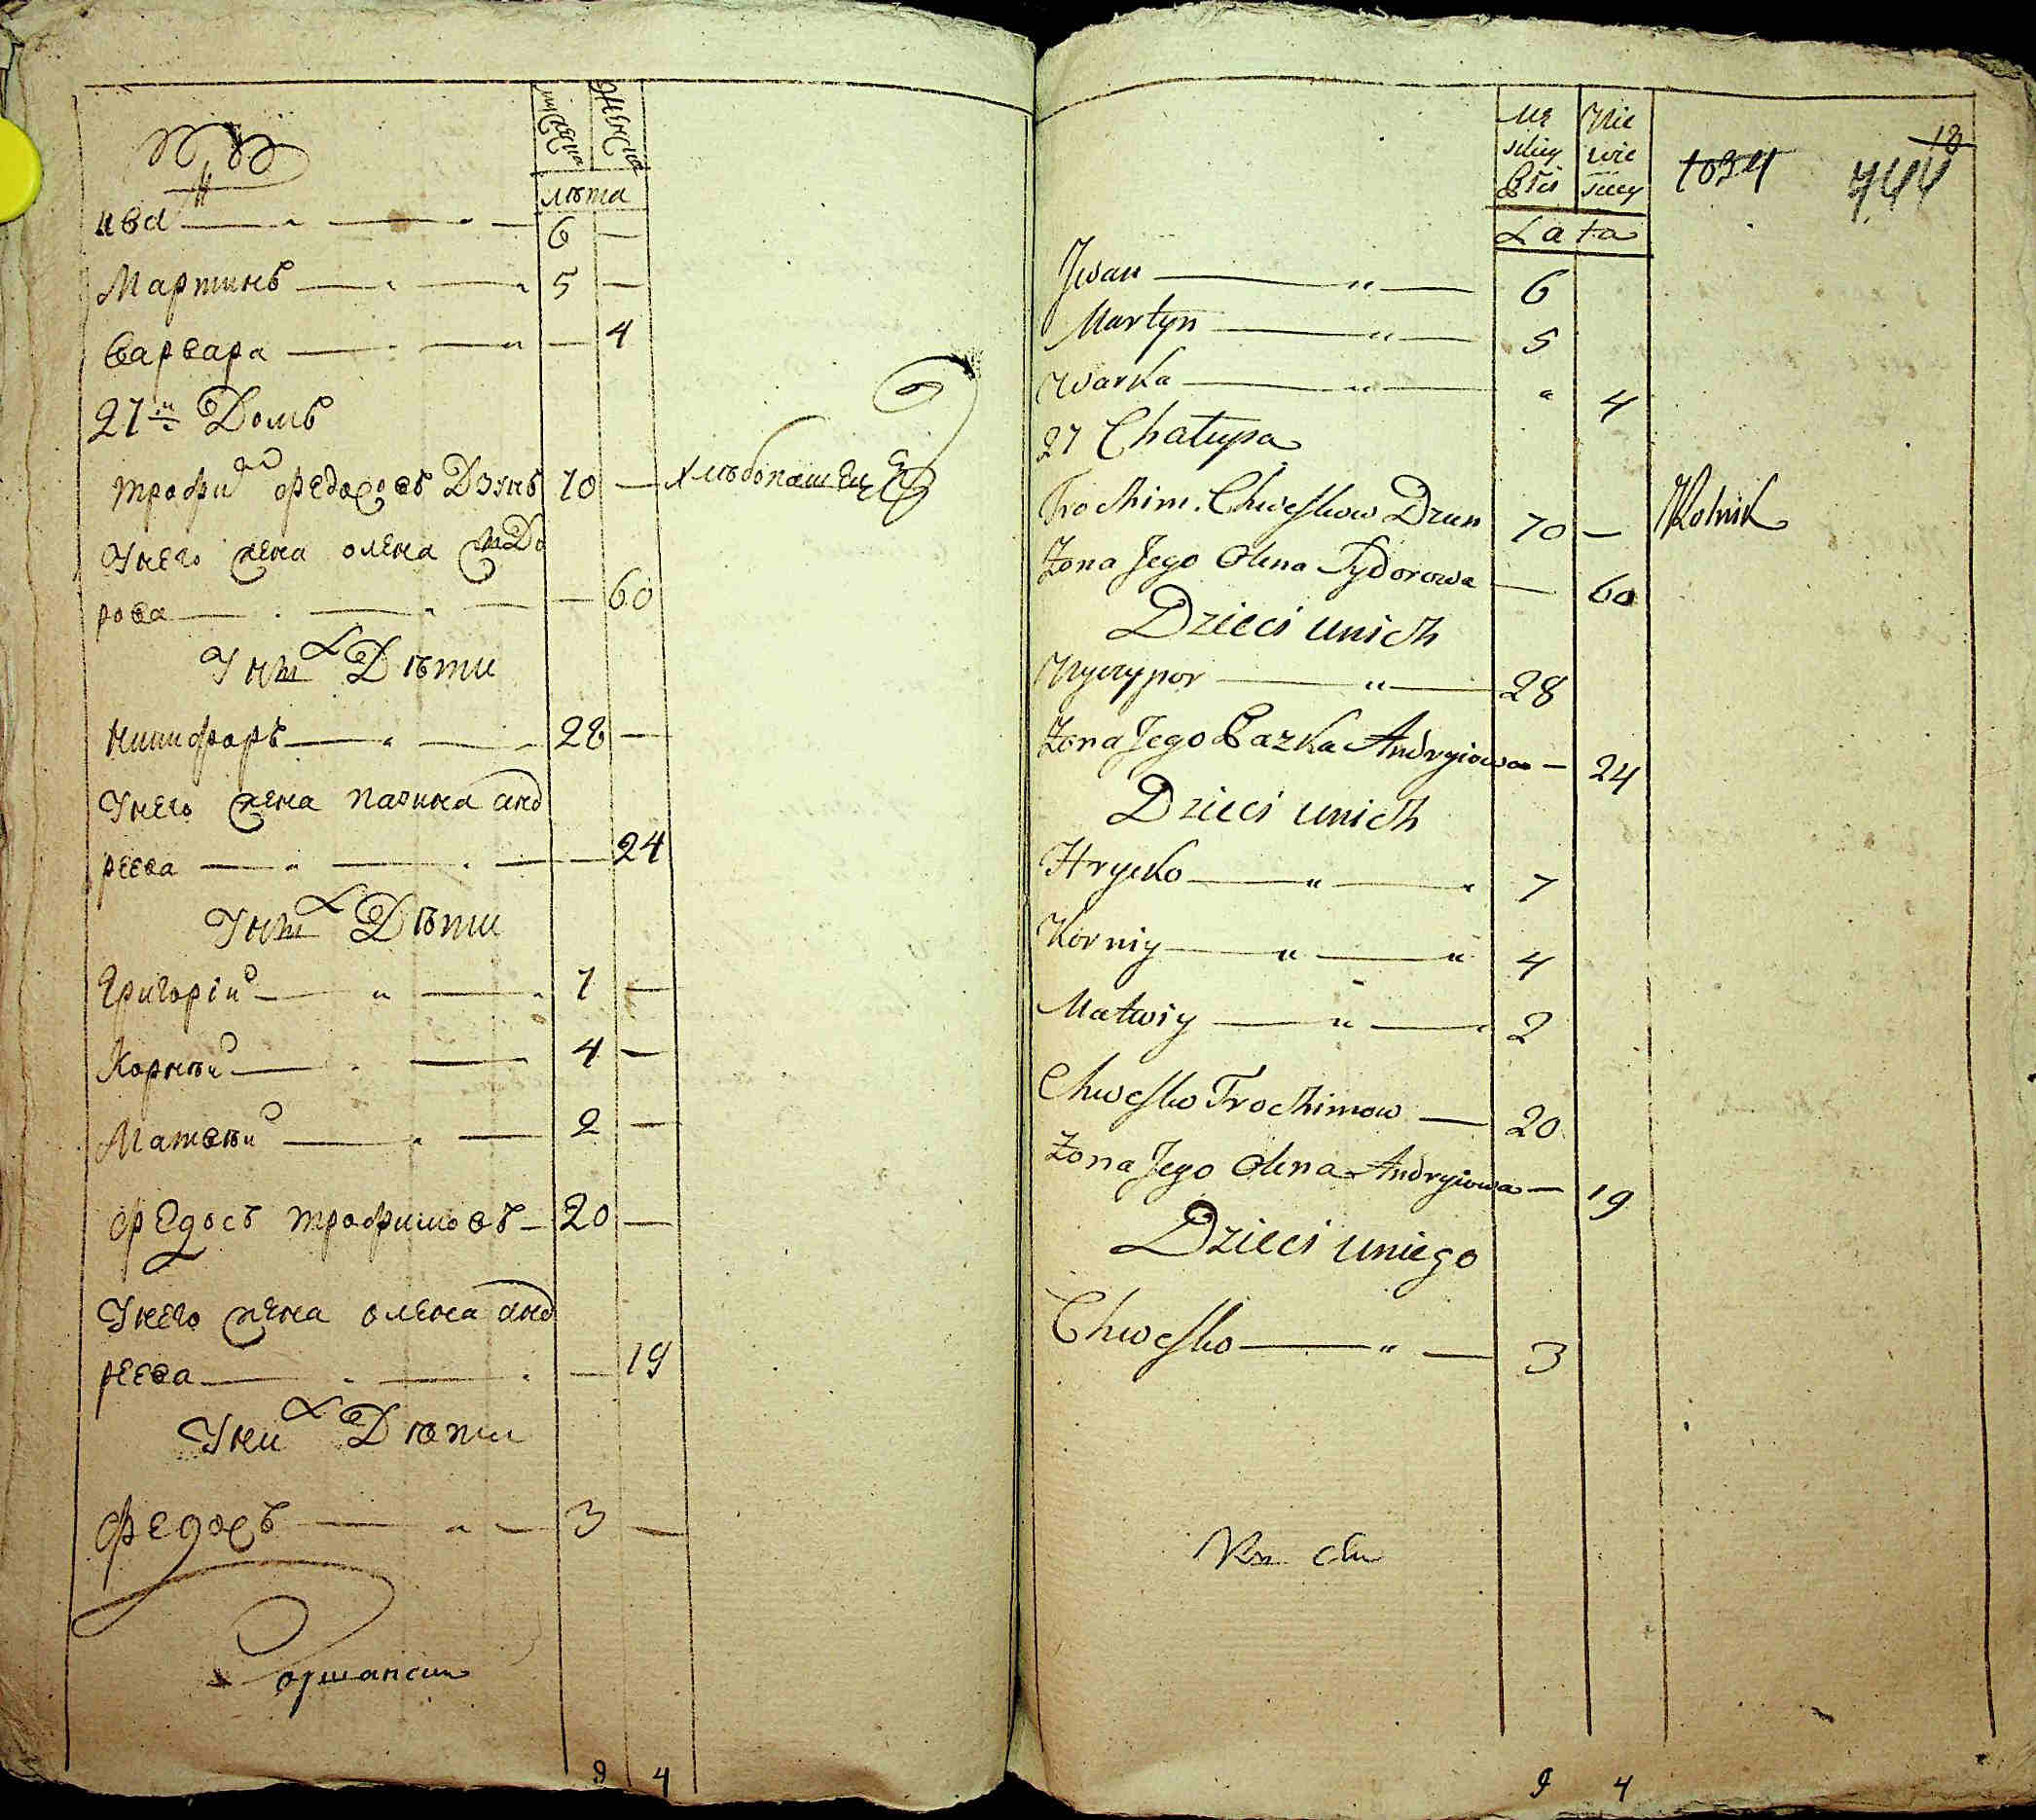 мужеска женска
лѣта
Иванъ — " — " — 6 —
Мартинъ — " — " 5 —
Варвара — " — " — 4
27й Домъ
трофим федосовъ Дзунъ 70 — хлѣбопашецъ
Унего жена олена сидо
рова — " — " — 60
Уних Дѣти
никифоръ — " — " 28 —
Унего жена пазина анд
реева — " — " — 24
Уних Дѣти
Григорій — " — " 7 —
Корнѣй — " — 4 —
Матвѣй — " — 2 —
федосъ трофимовъ — 20 —
Унего жена олена анд
реева — " — " — 19
Уних Дѣти
федосъ — " — 3 —
9 4
Męskiey Płci Niewieściey
Lata
18
1034 744
Jwan — " — 6
Martyn — " — 5
Warka — " — " 4
27 Chałupa
Trochim Chweskow Dzun 70 — Rolnik
Zona Jego Olena Sydorowa — 60
Dzieci unich
Nyczypor — " — 28
Zona Jego Pazka Andryiowa — 24
Dzieci unich
Hrycko — " — " 7
Korniy — " — " 4
Matwiy — " — " 2
Chwesko Trochimow — 20
Zona Jego Olena Andryiowa — 19
Dzieci uniego
Chwesko — " — 3
9 4